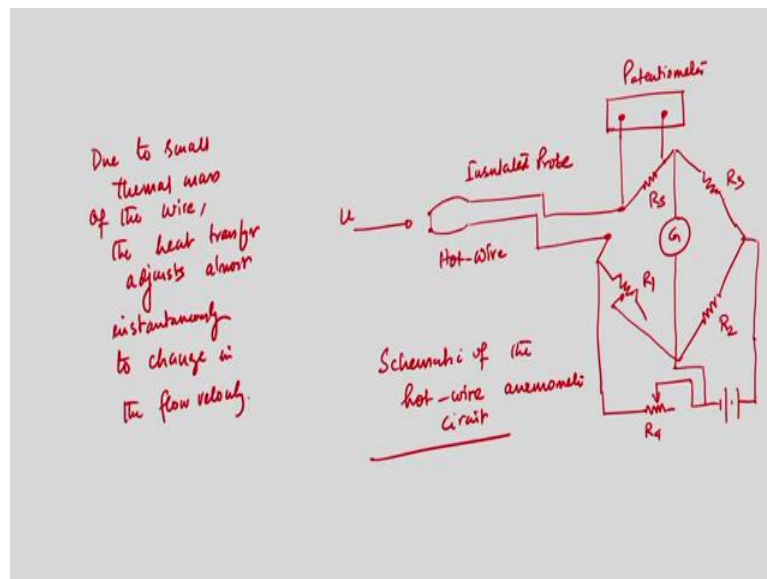 Due to small
thermal mass
of the wire,
the heat transfer
adjusts almost
instantaneously
to change in
the flow velocity.
Potentiometer
Insulated Probe
u
Hot-wire
Rs
R3
G
R1
R2
R4
Schematic of the
hot-wire anemometer
circuit